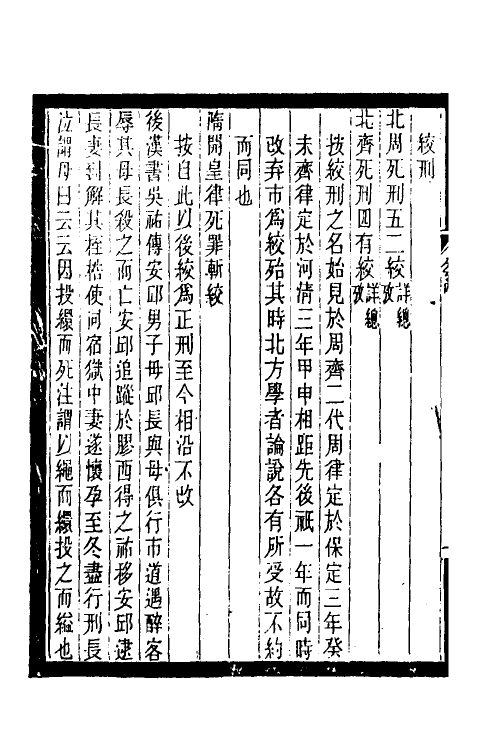 絞刑
北周死刑五二絞詳總攷
北齊死刑四有絞詳總攷
按絞刑之名始見於周齊二代周律定於保定三年癸
未齊律定於河清三年甲申相距先後祇一年而同時
改弃市爲絞殆其時北方學者論說各有所受故不約
而同也
隋開皇律死罪斬絞
按自此以後絞爲正刑至今相沿不改
後漢書吳祐傳安邱男子毋邱長與母俱行市道遇醉客
辱其母長殺之而亡安邱追蹤於膠西得之祐移安邱逮
長妻到解其桎梏使同宿獄中妻遂懷孕至冬盡行刑長
泣謂母曰云云因投繯而死注謂以繩而繯投之而縊也